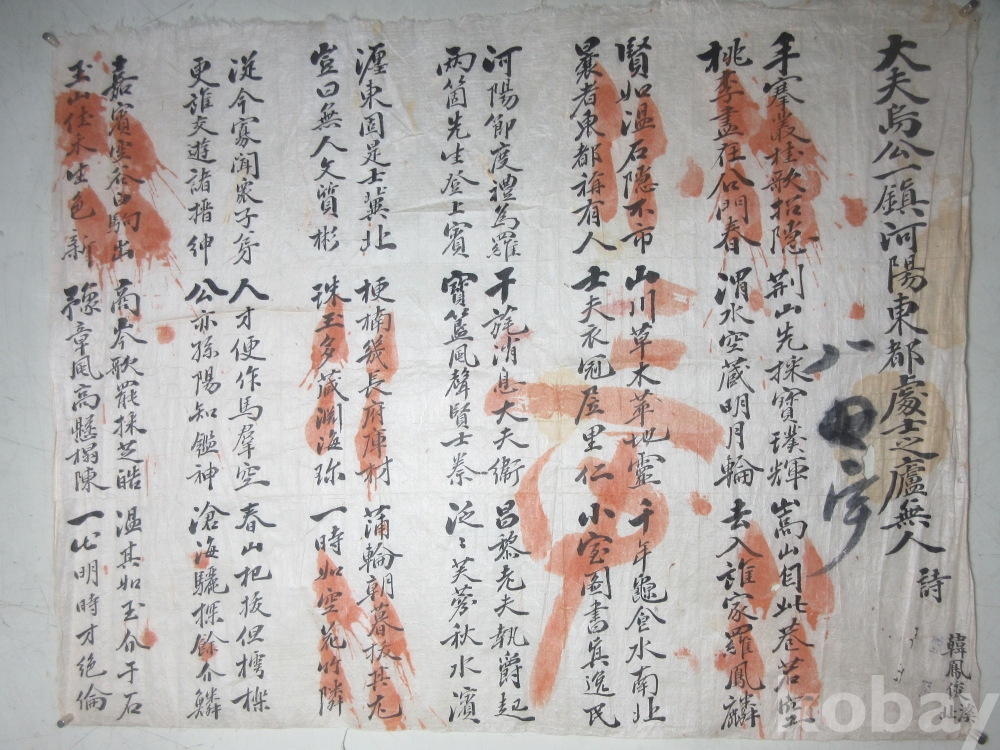 大夫烏公一鎭河陽東都處士之廬無人 詩
韓鳳俊
八
手搴叢桂歌招隱
桃李盡在公門春
荊山先採寶璞輝
渭水空藏明月輪
嵩山自此巷若空
去入誰家羅鳳麟
賢如溫石隱不市
曩者東都稱有人
山川草木華地靈
士夫衣冠居里仁
千年龜食水南北
小室圖書眞逸民
河陽節度禮爲羅
兩箇先生登上賓
干旄消息大夫衛
寶籃風聲賢士蔡
昌黎老夫執爵起
泛〻芙蓉秋水濱
瀍東固是士冀北
豈曰無人文質彬
梗楠幾長府庫材
珠玉多藏淵海珎
蒲輪朝暮拔其尤
一時如空花竹隣
從今寡聞衆子身
更誰交遊諸搢紳
人才便作馬羣空
公亦孫陽知鑑神
春山杞拔但樗櫟
滄海驪採餘介鱗
嘉賓坐谷白駒出
玉山佳木生色新
商岑歌罷採芝皓
豫章風高懸榻陳
溫其如玉介于石
一出明時才絶倫
kobay